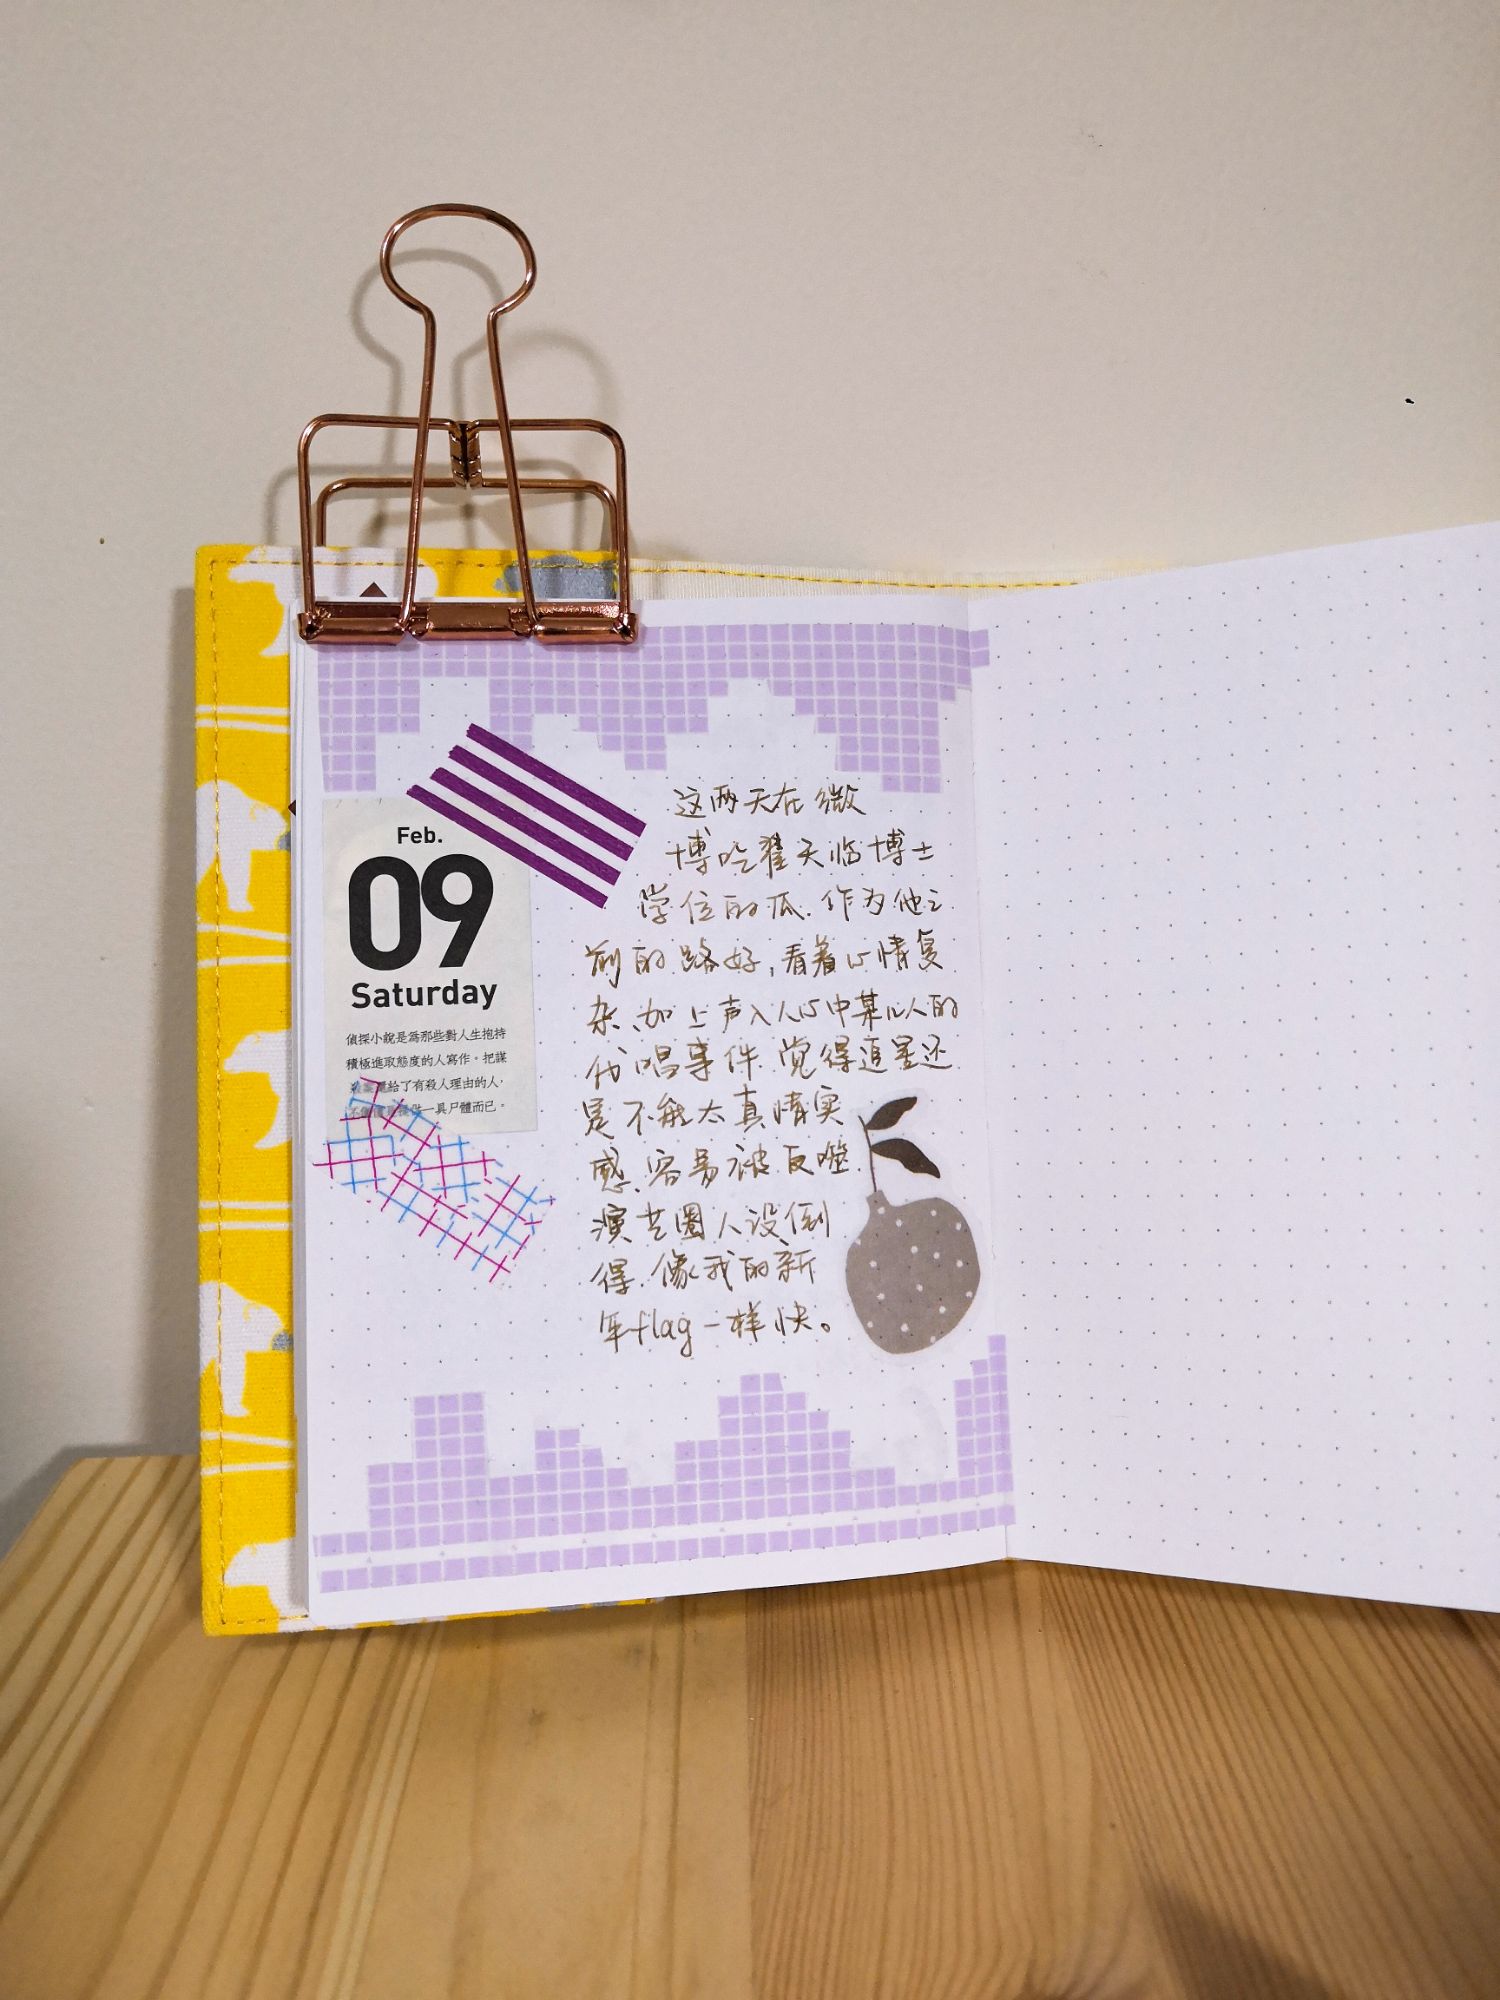 Feb.
09
Saturday
偵探小說是為那些對人生抱持
積極進取態度的人寫作。把謀
殺案還給了有殺人理由的人,
不僅僅是提供一具尸體而已。
这两天在微
博吃翟天临博士
学位的瓜.作为他之
前的路好,看着心情复
杂、加上声入人心中某儿人的
代唱事件.觉得追星还
是不能太真情实
感.容易被反噬.
演艺圈人设倒
得.像我的新
年flag一样快。